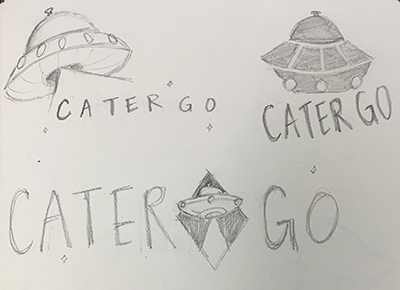 CATER GO
CATER GO
CATER GO